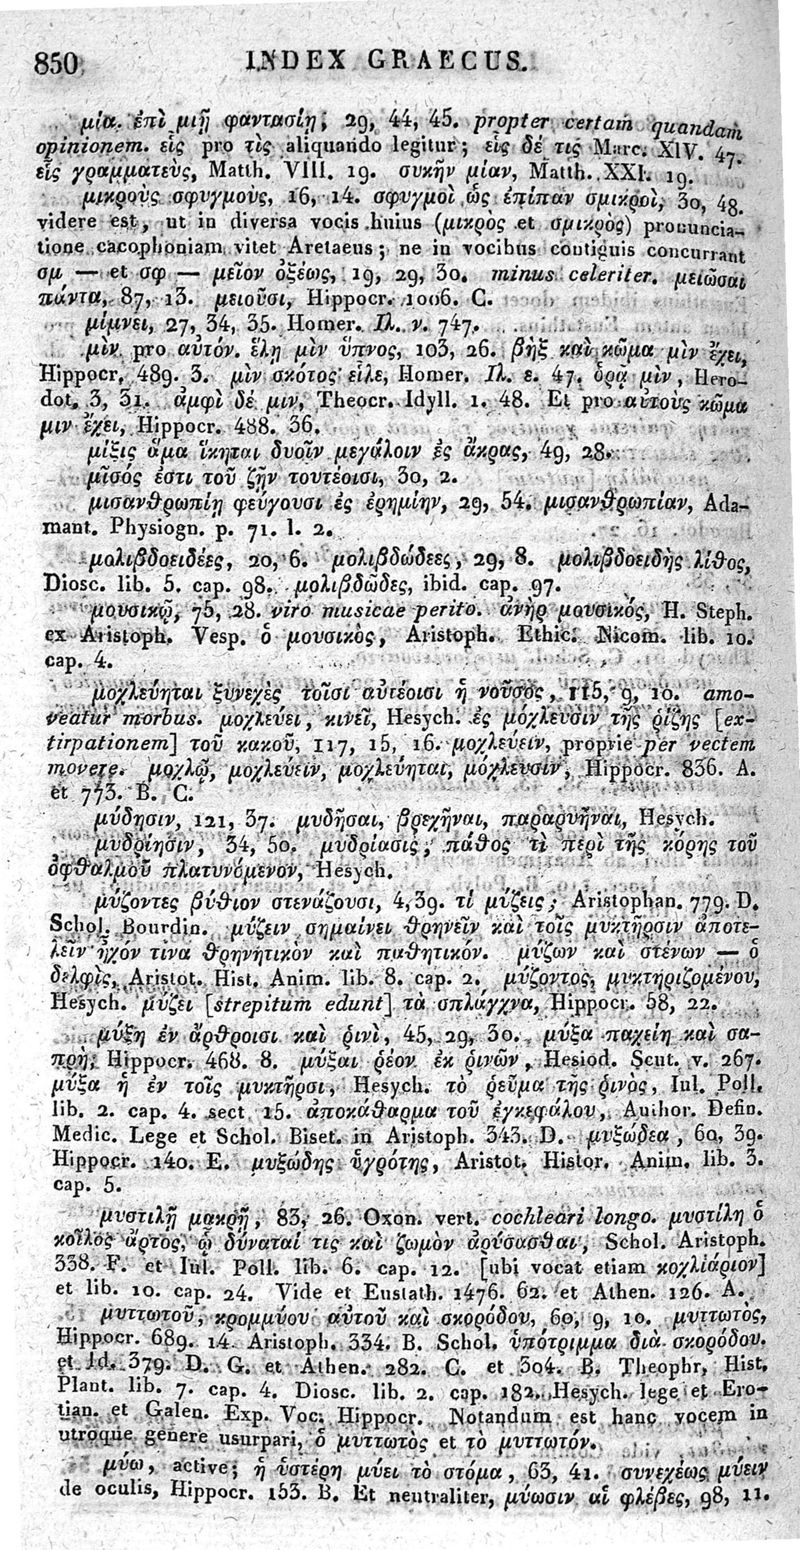 850 INDEX GRAECUS.
μία. ἐπὶ μιῇ φαντασίῃ, 29, 44, 45. propter certam quandam
opinionem. εἷς pro τὶς aliquando legitur; εἷς δέ τις Marc. XIV. 47.
εἷς γραμματεὺς, Matth. VIII. 19. συκῆν μίαν, Matth. XXI. 19.
μικροὺς σφυγμοὺς, 16, 14. σφυγμοὶ ὡς ἐπίπαν σμικροὶ, 30, 48.
videre est, ut in diversa vocis huius (μικρὸς et σμικρὸς) pronuncia-
tione cacophoniam vitet Aretaeus; ne in vocibus contiguis concurrant
σμ — et σφ — μεῖον ὀξέως, 19, 29, 30. minus celeriter. μειῶσαι
πάντα, 87, 13. μειοῦσι, Hippocr. 1006. C.
μίμνει, 27, 34, 35. Homer. Ιλ. ν. 747.
μὶν pro αὐτόν. ἕλῃ μὶν ὕπνος, 103, 26. βὴξ καὶ κῶμα μὶν ἔχει,
Hippocr. 489. 3. μὶν σκότος εἷλε, Homer. Ιλ. ε. 47. ὁρᾷ μὶν, Hero-
dot. 3, 31. ἀμφὶ δέ μιν, Theocr. Idyll. 1. 48. Et pro αὐτοὺς κῶμα
μιν ἔχει, Hippocr. 488. 36.
μίξις ἅμα ἵκηται δυοῖν μεγάλοιν ἐς ἄκρας, 49, 28.
μῖσός ἐστι τοῦ ζῆν τουτέοισι, 30, 2.
μισανθρωπίῃ φεύγουσι ἐς ἐρημίην, 29, 54. μισανθρωπίαν, Ada-
mant. Physiogn. p. 71. l. 2.
μολιβδοειδέες, 20, 6. μολιβδώδεες, 29, 8. μολιβδοειδὴς λίθος,
Diosc. lib. 5. cap. 98. μολιβδῶδες, ibid. cap. 97.
μουσικῷ, 75, 28. viro musicae perito. ἀνὴρ μουσικός, H. Steph.
ex Aristoph. Vesp. ὁ μουσικὸς, Aristoph. Ethic. Nicom. lib. 10.
cap. 4.
μοχλεύηται ξυνεχὲς τοῖσι αὐτέοισι ἡ νοῦσος, 115, 9, 10. amo-
veatur morbus. μοχλεύει, κινεῖ, Hesych. ἐς μόχλευσιν τῆς ῥίζης [ex-
tirpationem] τοῦ κακοῦ, 117, 15, 16. μοχλεύειν, proprie per vectem
movere. μοχλῷ, μοχλεύειν, μοχλεύηται, μόχλευσιν, Hippocr. 836. A.
et 773. B. C.
μύδησιν, 121, 37. μυδῆσαι, βρεχῆναι, παραρυῆναι, Hesych.
μυδρίησιν, 34, 50. μυδρίασις, πάθος τὶ περὶ τῆς κόρης τοῦ
ὀφθαλμοῦ πλατυνόμενον, Hesych.
μύζοντες βύθιον στενάζουσι, 4, 39. τί μύζεις; Aristophan. 779. D.
Schol. Bourdin. μύζειν σημαίνει θρηνεῖν καὶ τοῖς μυκτῆρσιν ἀποτε-
λεῖν ἦχόν τινα θρηνητικὸν καὶ παθητικόν. μύζων καὶ στένων — ὁ
δελφὶς, Aristot. Hist. Anim. lib. 8. cap. 2. μύζοντος, μυκτηριζομένου,
Hesych. μύζει [strepitum edunt] τὰ σπλάγχνα, Hippocr. 58, 22.
μύξη ἐν ἄρθροισι καὶ ῥινὶ, 45, 29, 30. μύξα παχείη καὶ σα-
πρὴ, Hippocr. 468. 8. μύξαι ῥέον ἐκ ῥινῶν, Hesiod. Scut. v. 267.
μύξα ἡ ἐν τοῖς μυκτῆρσι, Hesych. τὸ ῥεῦμα τῆς ῥινὸς, Iul. Poll.
lib. 2. cap. 4. sect. 15. ἀποκάθαρμα τοῦ ἐγκεφάλου, Author. Defin.
Medic. Lege et Schol. Biset. in Aristoph. 343. D. μυξώδεα, 60, 39.
Hippocr. 140. E. μυξώδης ὑγρότης, Aristot. Histor. Anim. lib. 3.
cap. 5.
μυστιλῇ μακρῇ, 83, 26. Oxon. vert. cochleari longo. μυστίλη ὁ
κοῖλος ἄρτος, ᾧ δύναταί τις καὶ ζωμὸν ἀρύσασθαι, Schol. Aristoph.
338. F. et Iul. Poll. lib. 6. cap. 12. [ubi vocat etiam κοχλιάριον]
et lib. 10. cap. 24. Vide et Eustath. 1476. 62. et Athen. 126. A.
μυττωτοῦ, κρομμύου αὐτοῦ καὶ σκορόδου, 60, 9, 10. μυττωτὸς,
Hippocr. 689. 14. Aristoph. 334. B. Schol. ὑπότριμμα διὰ σκορόδου.
et Id. 379. D. G. et Athen. 282. C. et 304. B. Theophr. Hist.
Plant. lib. 7. cap. 4. Diosc. lib. 2. cap. 182. Hesych. lege et Ero-
tian. et Galen. Exp. Voc. Hippocr. Notandum est hanc vocem in
utroque genere usurpari, ὁ μυττωτὸς et τὸ μυττωτόν.
μύω, active; ἡ ὑστέρη μύει τὸ στόμα, 63, 41. συνεχέως μύειν
de oculis, Hippocr. 153. B. Et neutraliter, μύωσιν αἱ φλέβες, 98, 11.